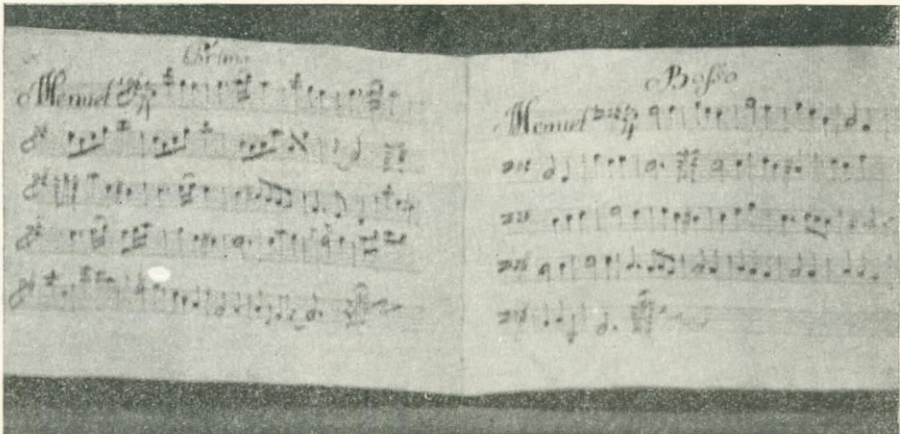 Primo
Menuet
Basso
Menuet